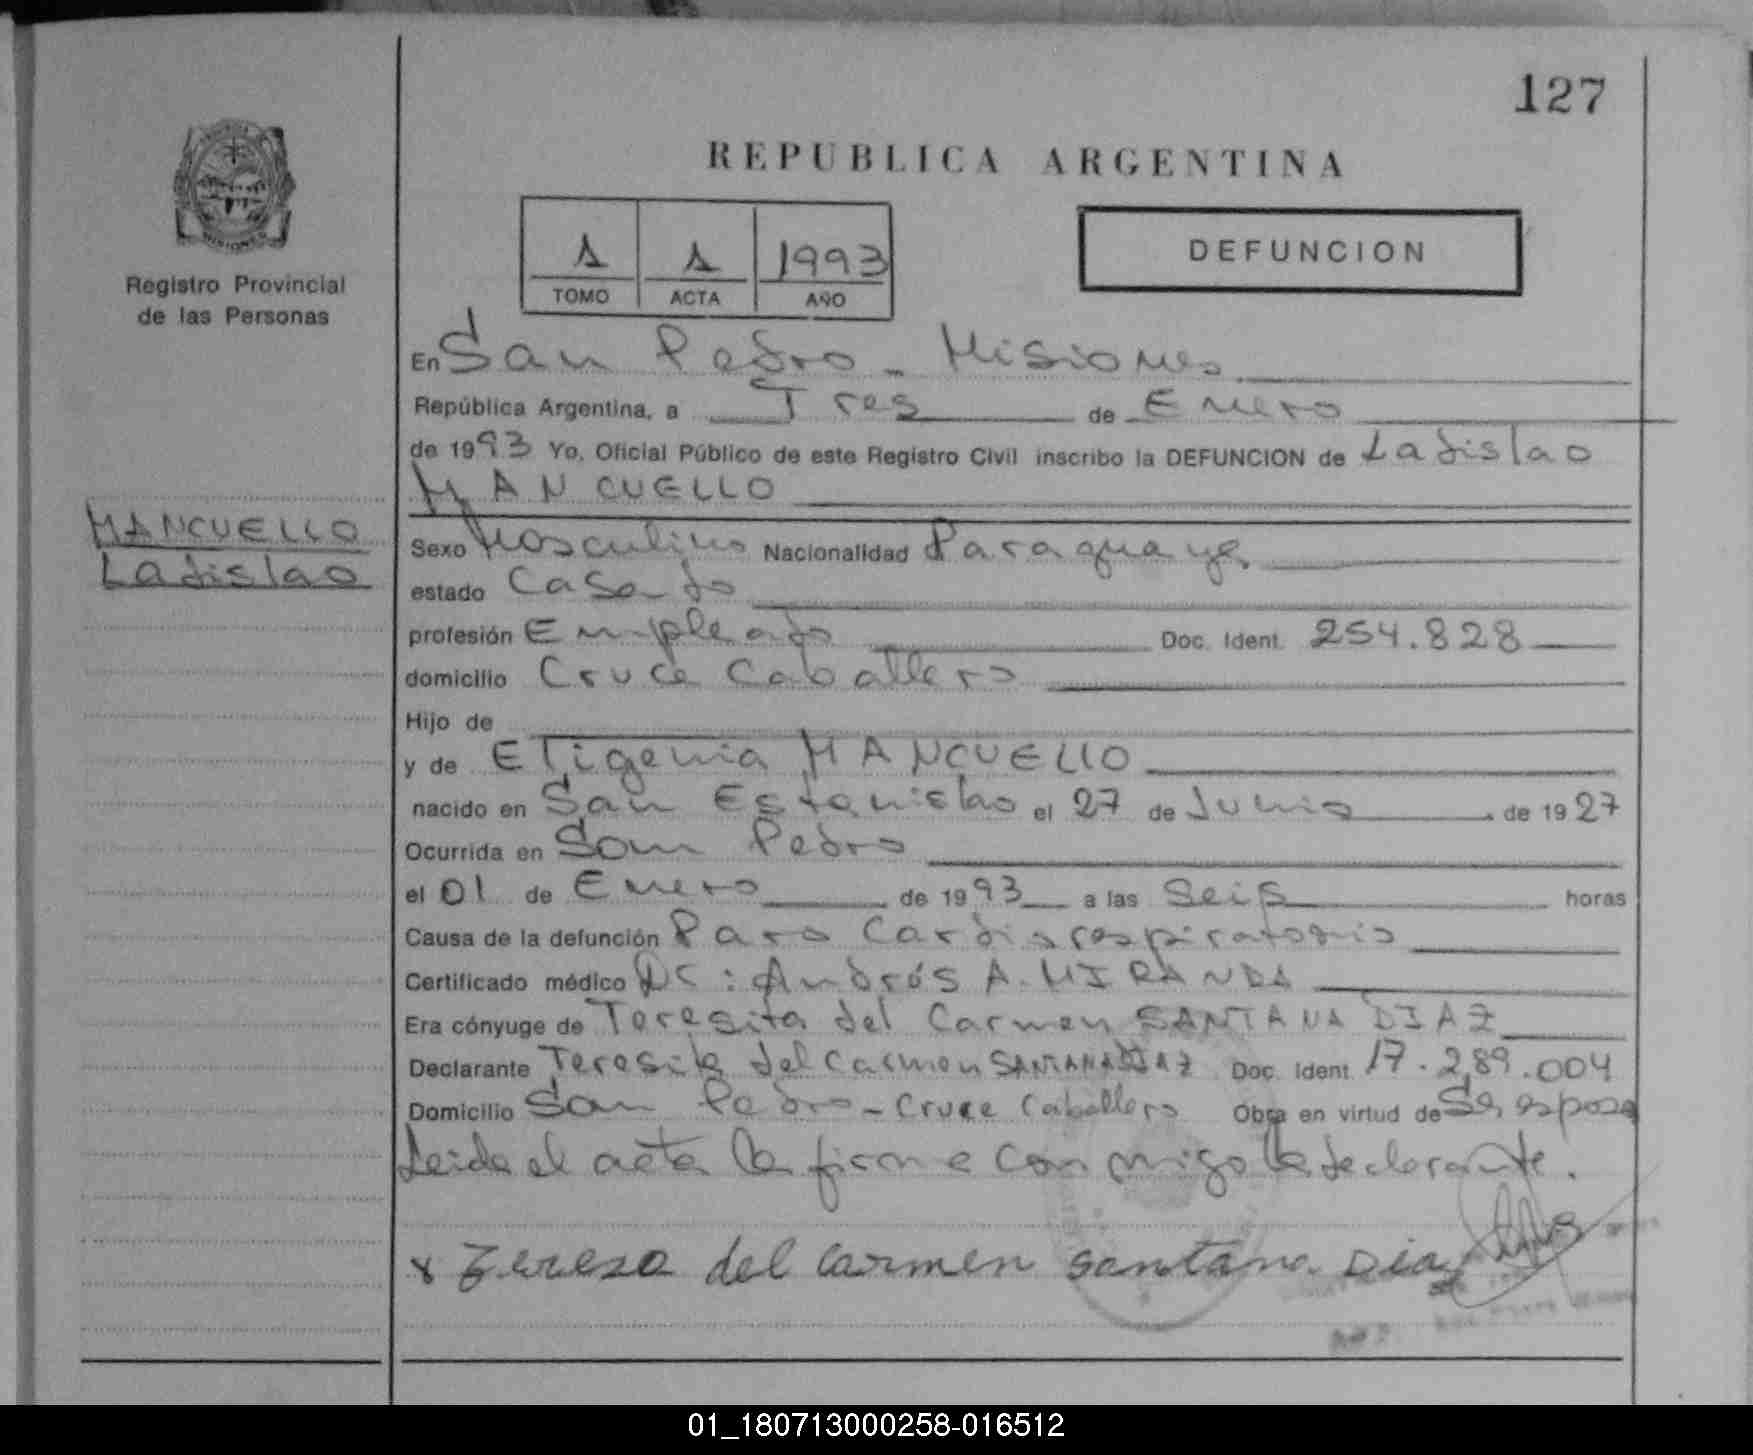 127
REPUBLICA ARGENTINA
1 1 1993
TOMO ACTA AÑO
DEFUNCION
MISIONES
Registro Provincial
de las Personas
MANCUELLO
Ladislao
En San Pedro - Misiones
República Argentina, a Tres de Enero
de 1993 Yo, Oficial Público de este Registro Civil inscribo la DEFUNCION de Ladislao
MANCUELLO
Sexo Masculino Nacionalidad Paraguaya
estado Casado
profesión Empleado Doc. Ident. 254.828
domicilio Cruce Caballero
Hijo de
y de Efigenia MANCUELLO
nacido en San Estanislao el 27 de Junio de 1927
Ocurrida en San Pedro
el 01 de Enero de 1993 a las Seis horas
Causa de la defunción Paro Cardiorespiratorio
Certificado médico Dr: Andrés A. MIRANDA
Era cónyuge de Teresita del Carmen SANTANA DIAZ
Declarante Teresita del Carmen SANTANA DIAZ Doc. Ident. 17.289.004
Domicilio San Pedro - Cruce Caballero Obra en virtud de Ser esposa
Leida el acta la firma con migo la declarante.
x Tereza del carmen santana Diaz
01_180713000258-016512